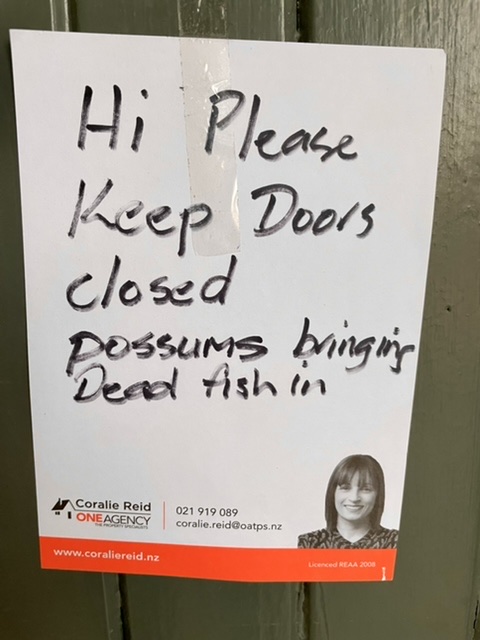 Hi Please
Keep Doors
closed
possums bringing
Dead fish in
Coralie Reid
ONEAGENCY
THE PROPERTY SPECIALISTS
021 919 089
coralie.reid@oatps.nz
www.coraliereid.nz
Licenced REAA 2008